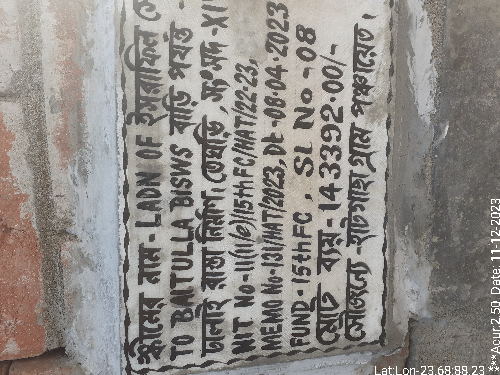 স্কীমের নাম- LAON OF ইসরাফিল
TO BAITULLA BISWS বাড়ি পর্যন্ত -
ঢালাই রাস্তা নির্মাণ। তেঘড়ি সংসদ -XI
NIT No-11(1/e)/15thFC/HAT/22-23,
MEMO No-131/HAT/2023, Dt-08.04.2023
FUND-15thFC, SL No-08
মোট ব্যয়-143392.00/-
সৌজন্যে-হাটগাছা গ্রাম পঞ্চায়েত।
Lat:Lon-23.68:88.23
***Acur:2.50 Date: 11-12-2023